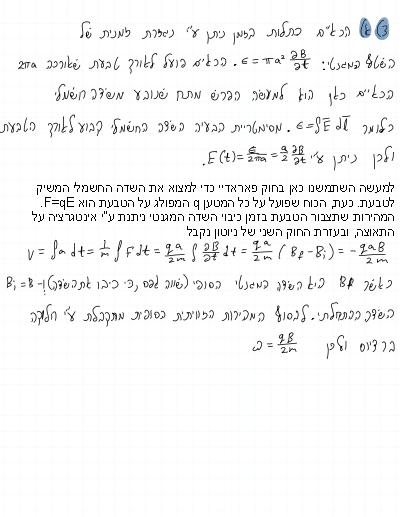 3 א) הכא"מ כתלות בזמן ניתן ע"י נגזרת זמנית של
השטף המגנטי: ε = πa² ∂B/∂t. הכא"מ פועל לאורך טבעת שאורכה 2πa
הכא"מ כאן הוא למעשה הפרש מתח שנובע משדה חשמלי
כלומר ε = ∮E⃗ dl⃗. מסימטריית הבעיה השדה החשמלי קבוע לאורך הטבעת
ולכן ניתן ע"י E(t) = ε/2πa = a/2 ∂B/∂t.
למעשה השתמשנו כאן בחוק פאראדיי כדי למצוא את השדה החשמלי המשיק
לטבעת. כעת, הכוח שפועל על כל המטען q המפולג על הטבעת הוא F=qE.
המהירות שתצבור הטבעת בזמן כיבוי השדה המגנטי ניתנת ע"י אינטגרציה על
התאוצה, ובעזרת החוק השני של ניוטון נקבל
v = ∫a dt = 1/m ∫F dt = qa/2m ∫ ∂B/∂t dt = qa/2m (Bf - Bi) = - qaB/2m
כאשר Bf הוא השדה המגנטי הסופי (שווה אפס, כי כיבו את השדה) ו-Bi = B
השדה ההתחלתי. לבסוף המהירות הזוויתית הסופית מתקבלת ע"י חלוקה
ברדיוס ולכן ω = qB/2m